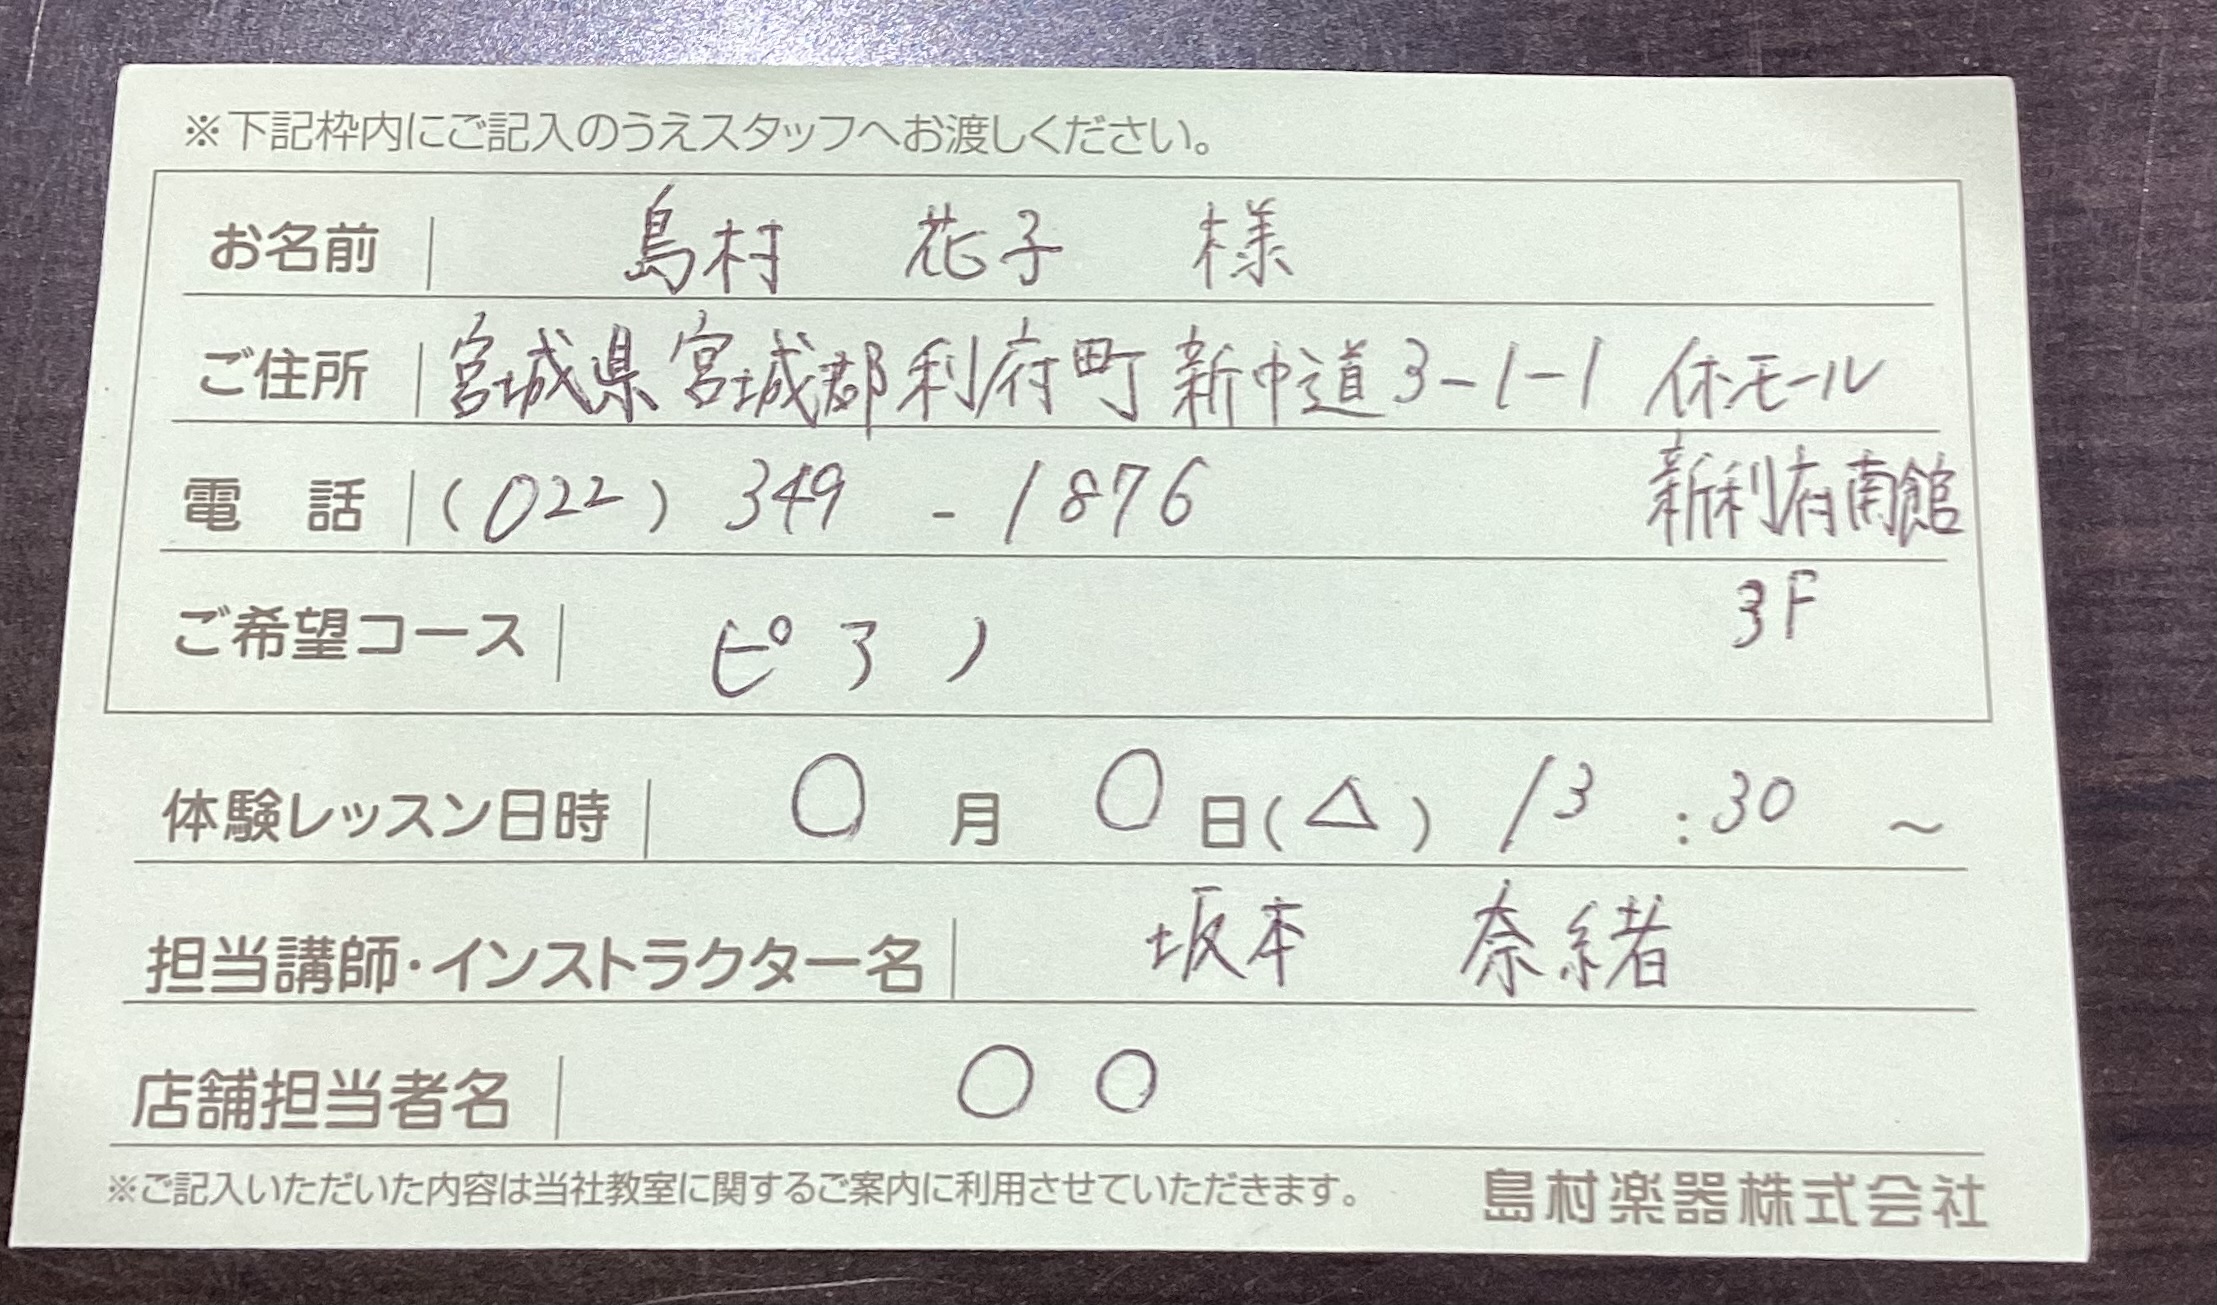 ※下記枠内にご記入のうえスタッフへお渡しください。
お名前 島村 花子 様
ご住所 宮城県宮城郡利府町新中道3-1-1 イオンモール
新利府南館
3F
電 話 (022) 349 - 1876
ご希望コース ピアノ
体験レッスン日時 〇 月 〇 日(△) 13 : 30 ～
担当講師・インストラクター名 坂本 奈緒
店舗担当者名 〇〇
※ご記入いただいた内容は当社教室に関するご案内に利用させていただきます。 島村楽器株式会社